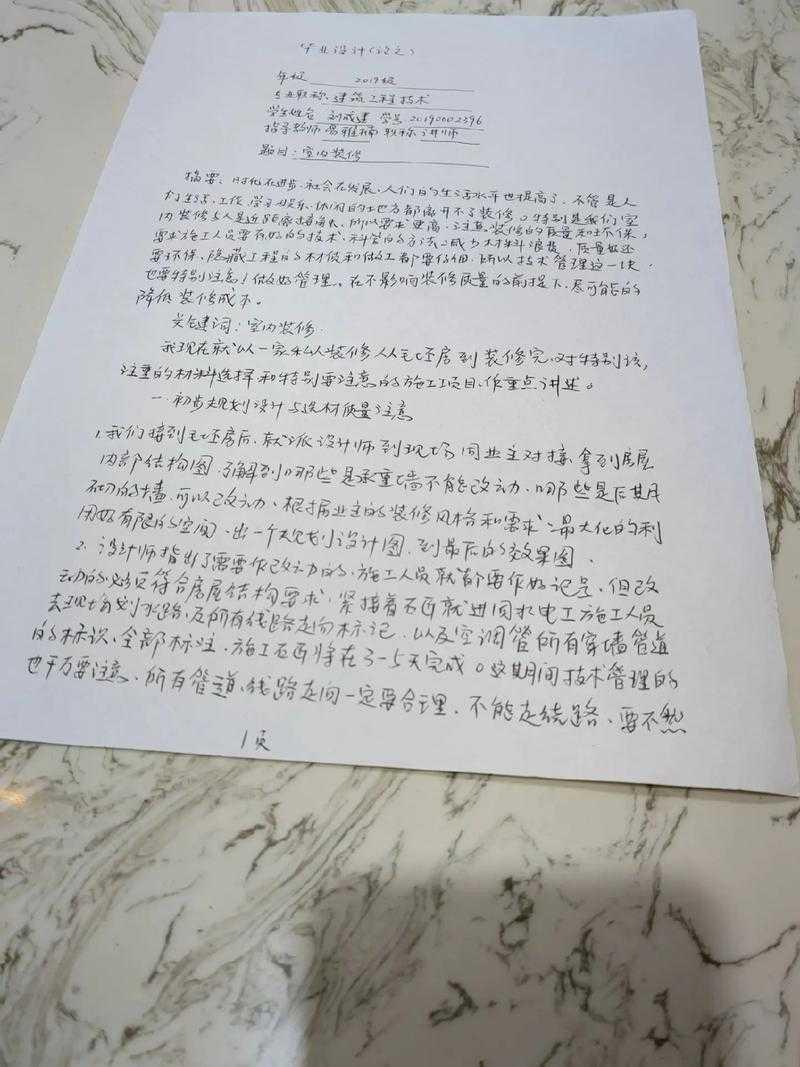 毕业设计(论文)
年级 2019级
专业职称: 建筑工程技术
学生姓名 刘成建 学号 20190002396
指导教师 易雅楠 职称 讲师
题目: 室内装修
摘要: 时代在进步、社会在发展、人们的生活水平也提高了、不管是人
们生活、工作、学习、娱乐、休闲的地方都离开不了装修。特别是我们室
内装修与人是近距离接触、所以要求更高、注重装修的质量和环保,
要求施工人员要有好的技术、科学的方法、减少材料浪费、质量好还
要环保、隐藏工程的材质和做工都要仔细、所以技术管理这一块
也要特别注意! 做好管理、在不影响装修质量的前提下、尽可能的
降低装修成本。
关键词: 室内装修.
我现在就以一家私人装修从毛坯房到装修完, 对特别该,
注重的材料选择和特别要注意的施工项目, 作重点讲述。
一 初步规划设计与选材质量注意
1. 我们接到毛坯房后、就派设计师到现场同业主对接, 拿到房屋
内部结构图、了解到哪些是承重墙不能改动、哪些是后期
砌的墙、可以改动、根据业主的装修风格和需求、最大化的利
用好有限的空间、出一个规划设计图、到最后的效果图.
2. 设计师指出了需要作改动的、施工人员就都要作好记号、但改
动的必须符合房屋结构要求、紧接着后再就进同水电工施工人员
去现场划水路、及所有线路走向标记、以及空调管所有穿墙管道
的标识、全部标注、施工后再将在3-5天完成。这期间技术管理的
也千万要注意、所有管道、线路走向一定要合理、不能走绕路、要不然
1页